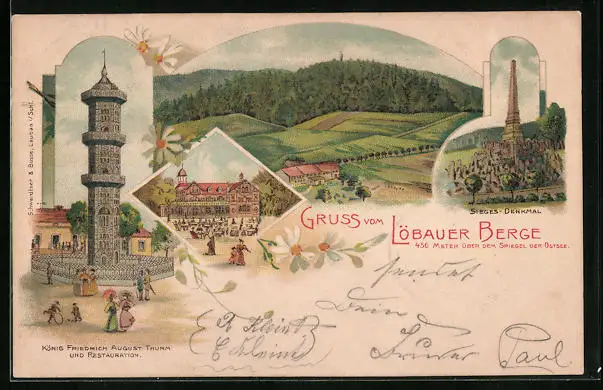 Schwerdtner & Böcse, Lauban i/Schl.
SIEGES-DENKMAL
GRUSS VOM LÖBAUER BERGE
450 METER ÜBER DEM SPIEGEL DER OSTSEE.
KÖNIG FRIEDRICH AUGUST THURM
UND RESTAURATION.
sendet
Dein
Bruder Paul